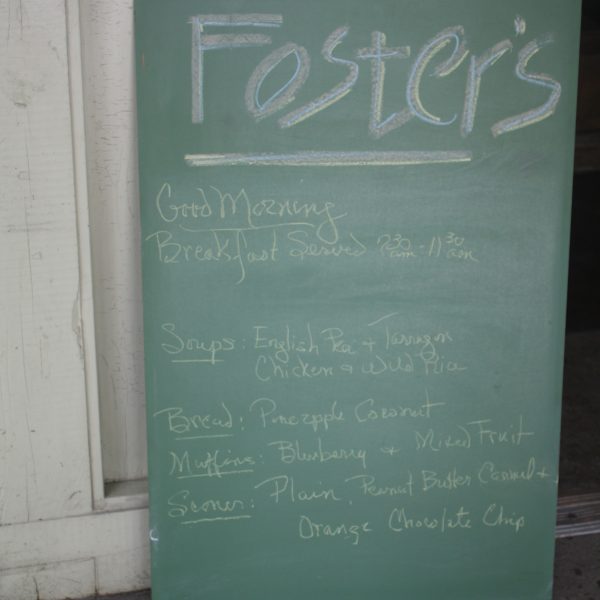 Foster's
Good Morning
Breakfast Served 7:30 am - 11:30 am
Soups: English Pea + Tarragon
Chicken & Wild Rice
Bread: Pineapple Coconut
Muffins: Blueberry + Mixed Fruit
Scones: Plain, Peanut Butter Caramel +
Orange Chocolate Chip